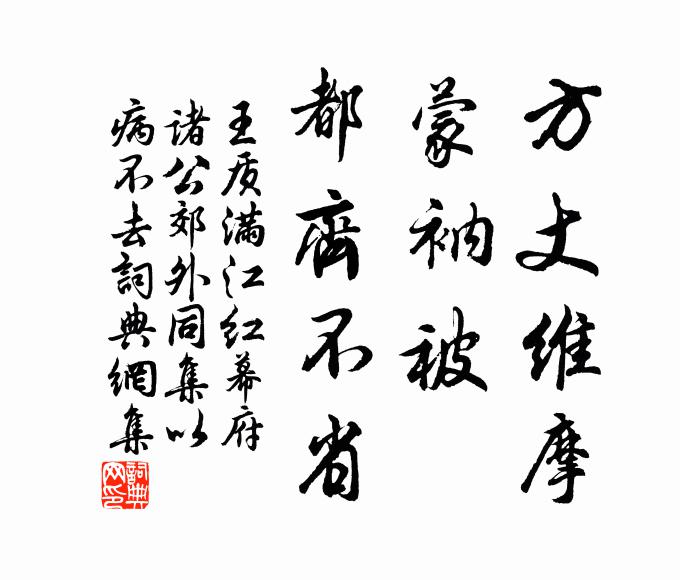 方丈维摩
蒙衲被
都齊不省
王质满江红幕府
诸公郊外同集以
病不去詞典網集
詞典网印